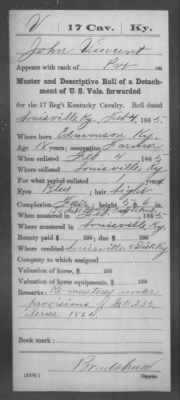 V 17 Cav. Ky.
John Vincent
Appears with rank of Pvt on
Muster and Descriptive Roll of a Detachment
of U. S. Vols. forwarded
for the 17 Reg't Kentucky Cavalry. Roll dated
Louisville Ky. Feb 4, 1865
Where born Edmonson Ky.
Age 18 years; occupation Farmer
When enlisted Feb 4 1865
Where enlisted Louisville Ky
For what period enlisted 1 years
Eyes Blue; hair Light
Complexion Fair; height 5 ft. 6 in.
When mustered in 1865
Where mustered in Louisville Ky
Bounty paid $ 100; due $ 100
Where credited Louisville
Company to which assigned
Valuation of horse, $ 100
Valuation of horse equipments, $ 100
Remarks: Re mustered under
provisions of G.O. 232
series 1864
Book mark:
Bradshaw
Copyist.